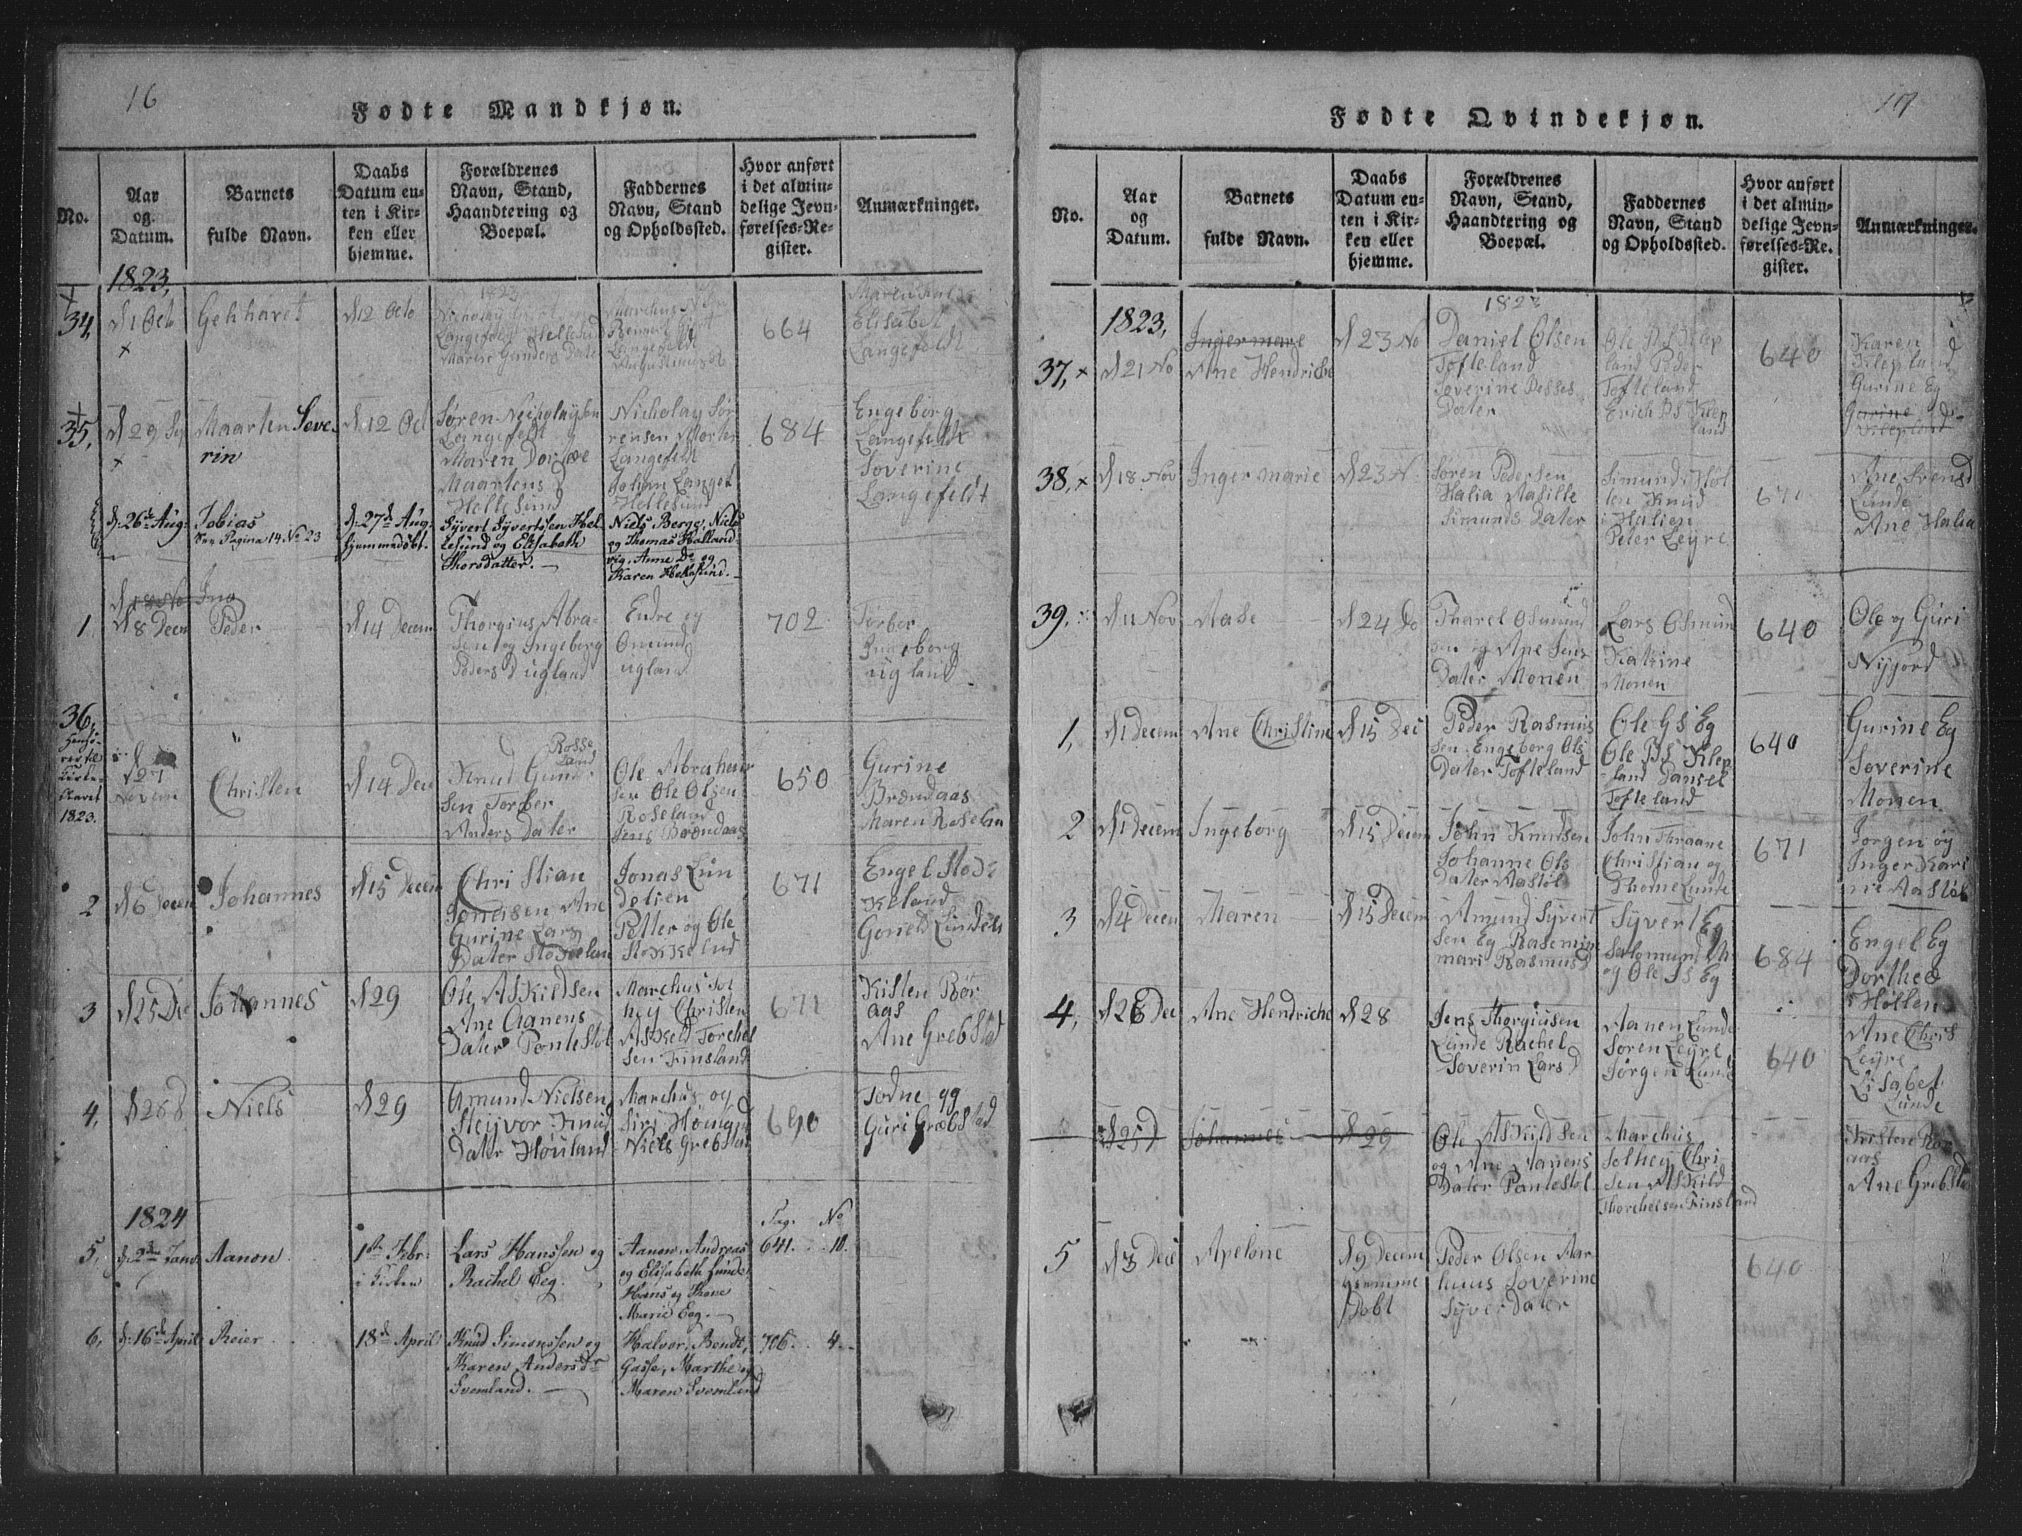 16
Fødte Mandkjøn.
No.
Aar
og
Datum.
Barnets
fulde Navn.
Daabs
Datum en-
ten i Kir-
ken eller
hjemme.
Forældrenes
Navn, Stand,
Haandtering og
Boepæl.
Faddernes
Navn, Stand
og Opholdssted.
Hvor anført
i det almin-
delige Jevn-
førelses-Re-
gister.
Anmærkninger.
1823,
34,
d 1 Octo
Gehharet
d 12 Octo
1823
Nicholay
Langefeldt Hellesund
Maren Gunders Dater
Langefeldt
664
Maren
Elisabet
Langefeldt
35,
d 29 Se
Maarten Seve-
rin
d 12 Oct
Søren Nicholaysen
Langefeldt
Maren Dorthe
Maartens
Helle Sund
Nicholay Sør
rensen Morten
Langefeldt
Johan Langef
Hellesund
684
Engeborg
Langefeldt
Soverine
Langefeldt
d: 26de Aug:
Tobias
See Pagina 14 No 23
d: 27d Aug:
hjemmedøbt.
Syvert Syvertssen Hel-
lesund og Elisabeth
Thorsdatter.
Niels Berge, Niels
og Thomas Halland-
vig, Anne De og
Karen Hellesund.
d 18 No Ino
1
d 8 Decem
Peder
d 14 Decem
Thorgius Abra-
Sen og Ingeborg
Peders d ugland
Endre og
Omund
ugland
702
Torber
Ingeborg
ug land
36,
Henfø-
res til
Kirke-
Aaret
1823.
d
27
Novem
Christen
d 14 Dec
Rosse
land
Knud Gunder
Sen Torber
Anders Dater
Ole Abrahem
Sen Ole Olsen
Roseland
Jens Brændaas
650
Gurine
Brændaas
Maren Roselan
2
d 6 Decem
Johannes
d 15 Decem
Chri Stian
Jensen Ane
Gurine Lars
Dater Stokkelan
Jonas Lun
Detien
Petter og Ole
Stokkelund
671
Engel Stok
Keland
Gonild Lundeli
3
d 25 De
Johannes
d 29
Ole ASkildsen
Ane Aanens
Dater Ponte Stol
Marchus Sol
hej Christen
ASkeld Torchel
Sen Finsland
671
Kisten Rør
aas
Ane Greb Stad
4,
d 28 d
Niels
d 29
Omund Nielsen
Steijvor Knud
Dater Høuland
Marchus og
Siri Høug
Niels Grebstad
690
Todne og
Guri Græb Stad
1824
Pag. No
5,
d: 2den Janv
Aanon
1ste Febr-
i Kirken
Lars Hanssen og
Rachel Eeg.
Aanon, Andreas
og Elisabeth Lunde,
Hans og Tone
Marie Eeg.
641. 10.
6,
d: 16de April
Reier
18d April
Knud Simonssen og
Karen Andersdr
Svemland.
Halvor, Bendt,
Gasse, Marthe og
Maren Svemland
706. 4.
17
Fødte Qvindekjøn.
No.
Aar
og
Datum.
Barnets
fulde Navn.
Daabs
Datum en-
ten i Kir-
ken eller
hjemme.
Forældrenes
Navn, Stand,
Haandtering og
Boepæl.
Faddernes
Navn, Stand
og Opholdssted.
Hvor anført
i det almin-
delige Jevn-
førelses-Re-
gister.
Anmærkninger.
1823,
37,
d 21 No
Ingermare
Ane Hendriche
d 23 No
1823
Daniel Olsen
Tofteland
Soverine Desses
Dater
Klep
land Peder
Tofteland
Erich Ds Klep
land
640
Karen
Klepland
Gurine Eg
Gurine
Klepland
38,
d 18 Nov
Inger marie
d 23 N
Søren Pedersen
Halia Aasille
Simunds Dater
Simund Høl
len Knud
i Halien
Peter Leyre
671
Ane Svensd
Lunde
Ane Halia
39,
d 11 Nov
Aase
d 24 Do
Tharel Osmund
sen og Ane Jens
Dater Monen
Lars Osmund
Katrine
Monen
640
Ole og Guri
Nyjord
1,
d 1 Decem
Ane Christine
d 15 Dec
Peder Rasmus
Sen Engeborg Ols
Dater Tofteland
Ole Gs Eg
Ole Bs Klep
land Daniel
Tofteland
640
Gurine Eg
Soverine
Monen
2
d 1 Decem
Ingeborg
d 15 Decem
John Knudsen
Johanne Ols
Dater Aastøl
John Thraane
Christian og
Thorne Lunde
671
Jorgen og
Inger Kari
ne Aastøl
3
d 4 Decem
Maren
d 15 Decem
Amund Syvert
Sen Eg Rasemin
mari Rasmusd
Syvert Eg
Salomund
og Ole Is Eg
684
Engel Eg
Dorthea
Høllen
4,
d 26 Dec
Ane Hendriche
d 28
Jens Thorgiusen
Lunde Rachel
Soverin Lars d
Aanen Lunde
Søren Leyre
Jørgen Lunde
640
Ane Chris
Leyre
Lisabet
Lunde
d 25 D
Johannes
d 29
Ole ASkildsen
og Ane Aanens
Dater Pantestøl
Marchus
Solhey Chri-
Sen ASkild
Thorchelsen Finsland
Kristene Rør
aas
Ane Grebstad
5
d 3 Dec
Apelone
d 9 Decem
hjemme
Døbt
Peder Olsen Aar
huus Soverine
Syver Dater
640